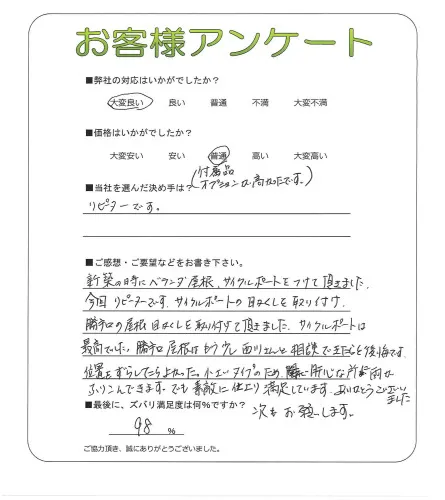 お客様アンケート
■弊社の対応はいかがでしたか?
大変良い 良い 普通 不満 大変不満
■価格はいかがでしたか?
大変安い 安い 普通 高い 大変高い
(付属品
オプションは高かったです。)
■当社を選んだ決め手は?
リピーターです。
■ご感想・ご要望などをお書き下さい。
新築の時にベランダ屋根、サイクルポートをつけて頂きました。
今回リピーターです。サイクルポートの目かくしを取り付け、
勝手口の屋根目かくしを取り付けて頂きました。サイクルポートは
最高でした。勝手口屋根はもう少し西川さんと相談できたらと後悔です。
位置をずらしたらよかった。小さいタイプのため 肝心な所が雨が
ふりこんできます。でも素敵に仕上り満足しています。ありがとうございい
ました
■最後に、ズバリ満足度は何%ですか?
次もお願いします。
98 %
ご協力頂き、誠にありがとうございました。